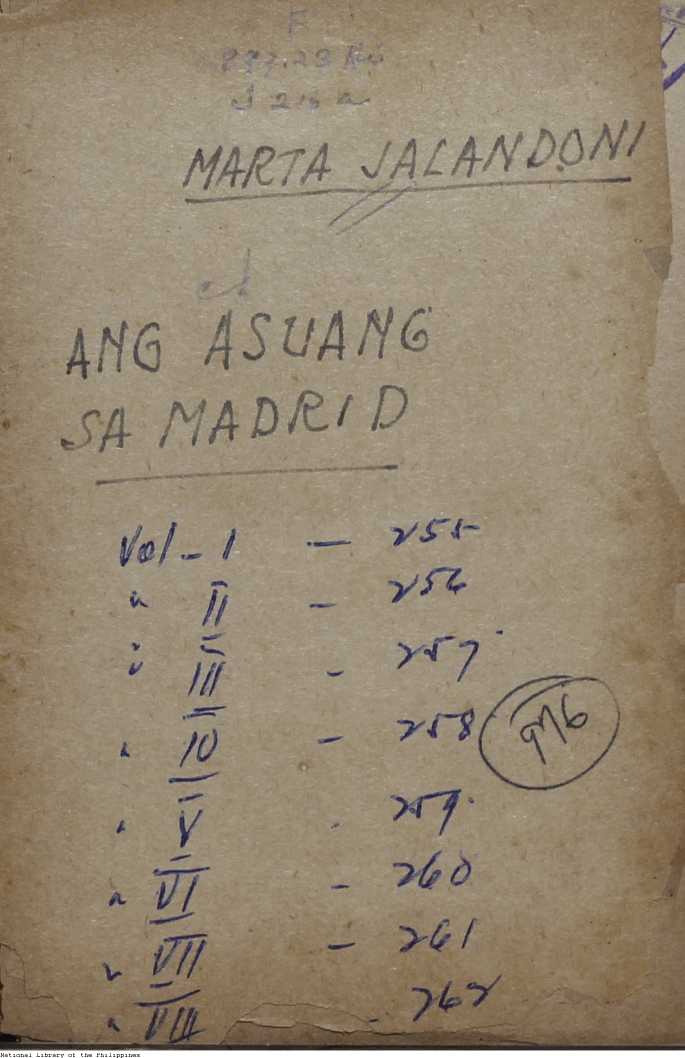 F
MARTA JALANDONI
ANG ASUANG
SA MADRID
Vol - 1 — 255
" II — 256
" III - 257
" IV - 258
" V - 259
" VI - 260
" VII - 261
" VIII - 262
National Library of the Philippines